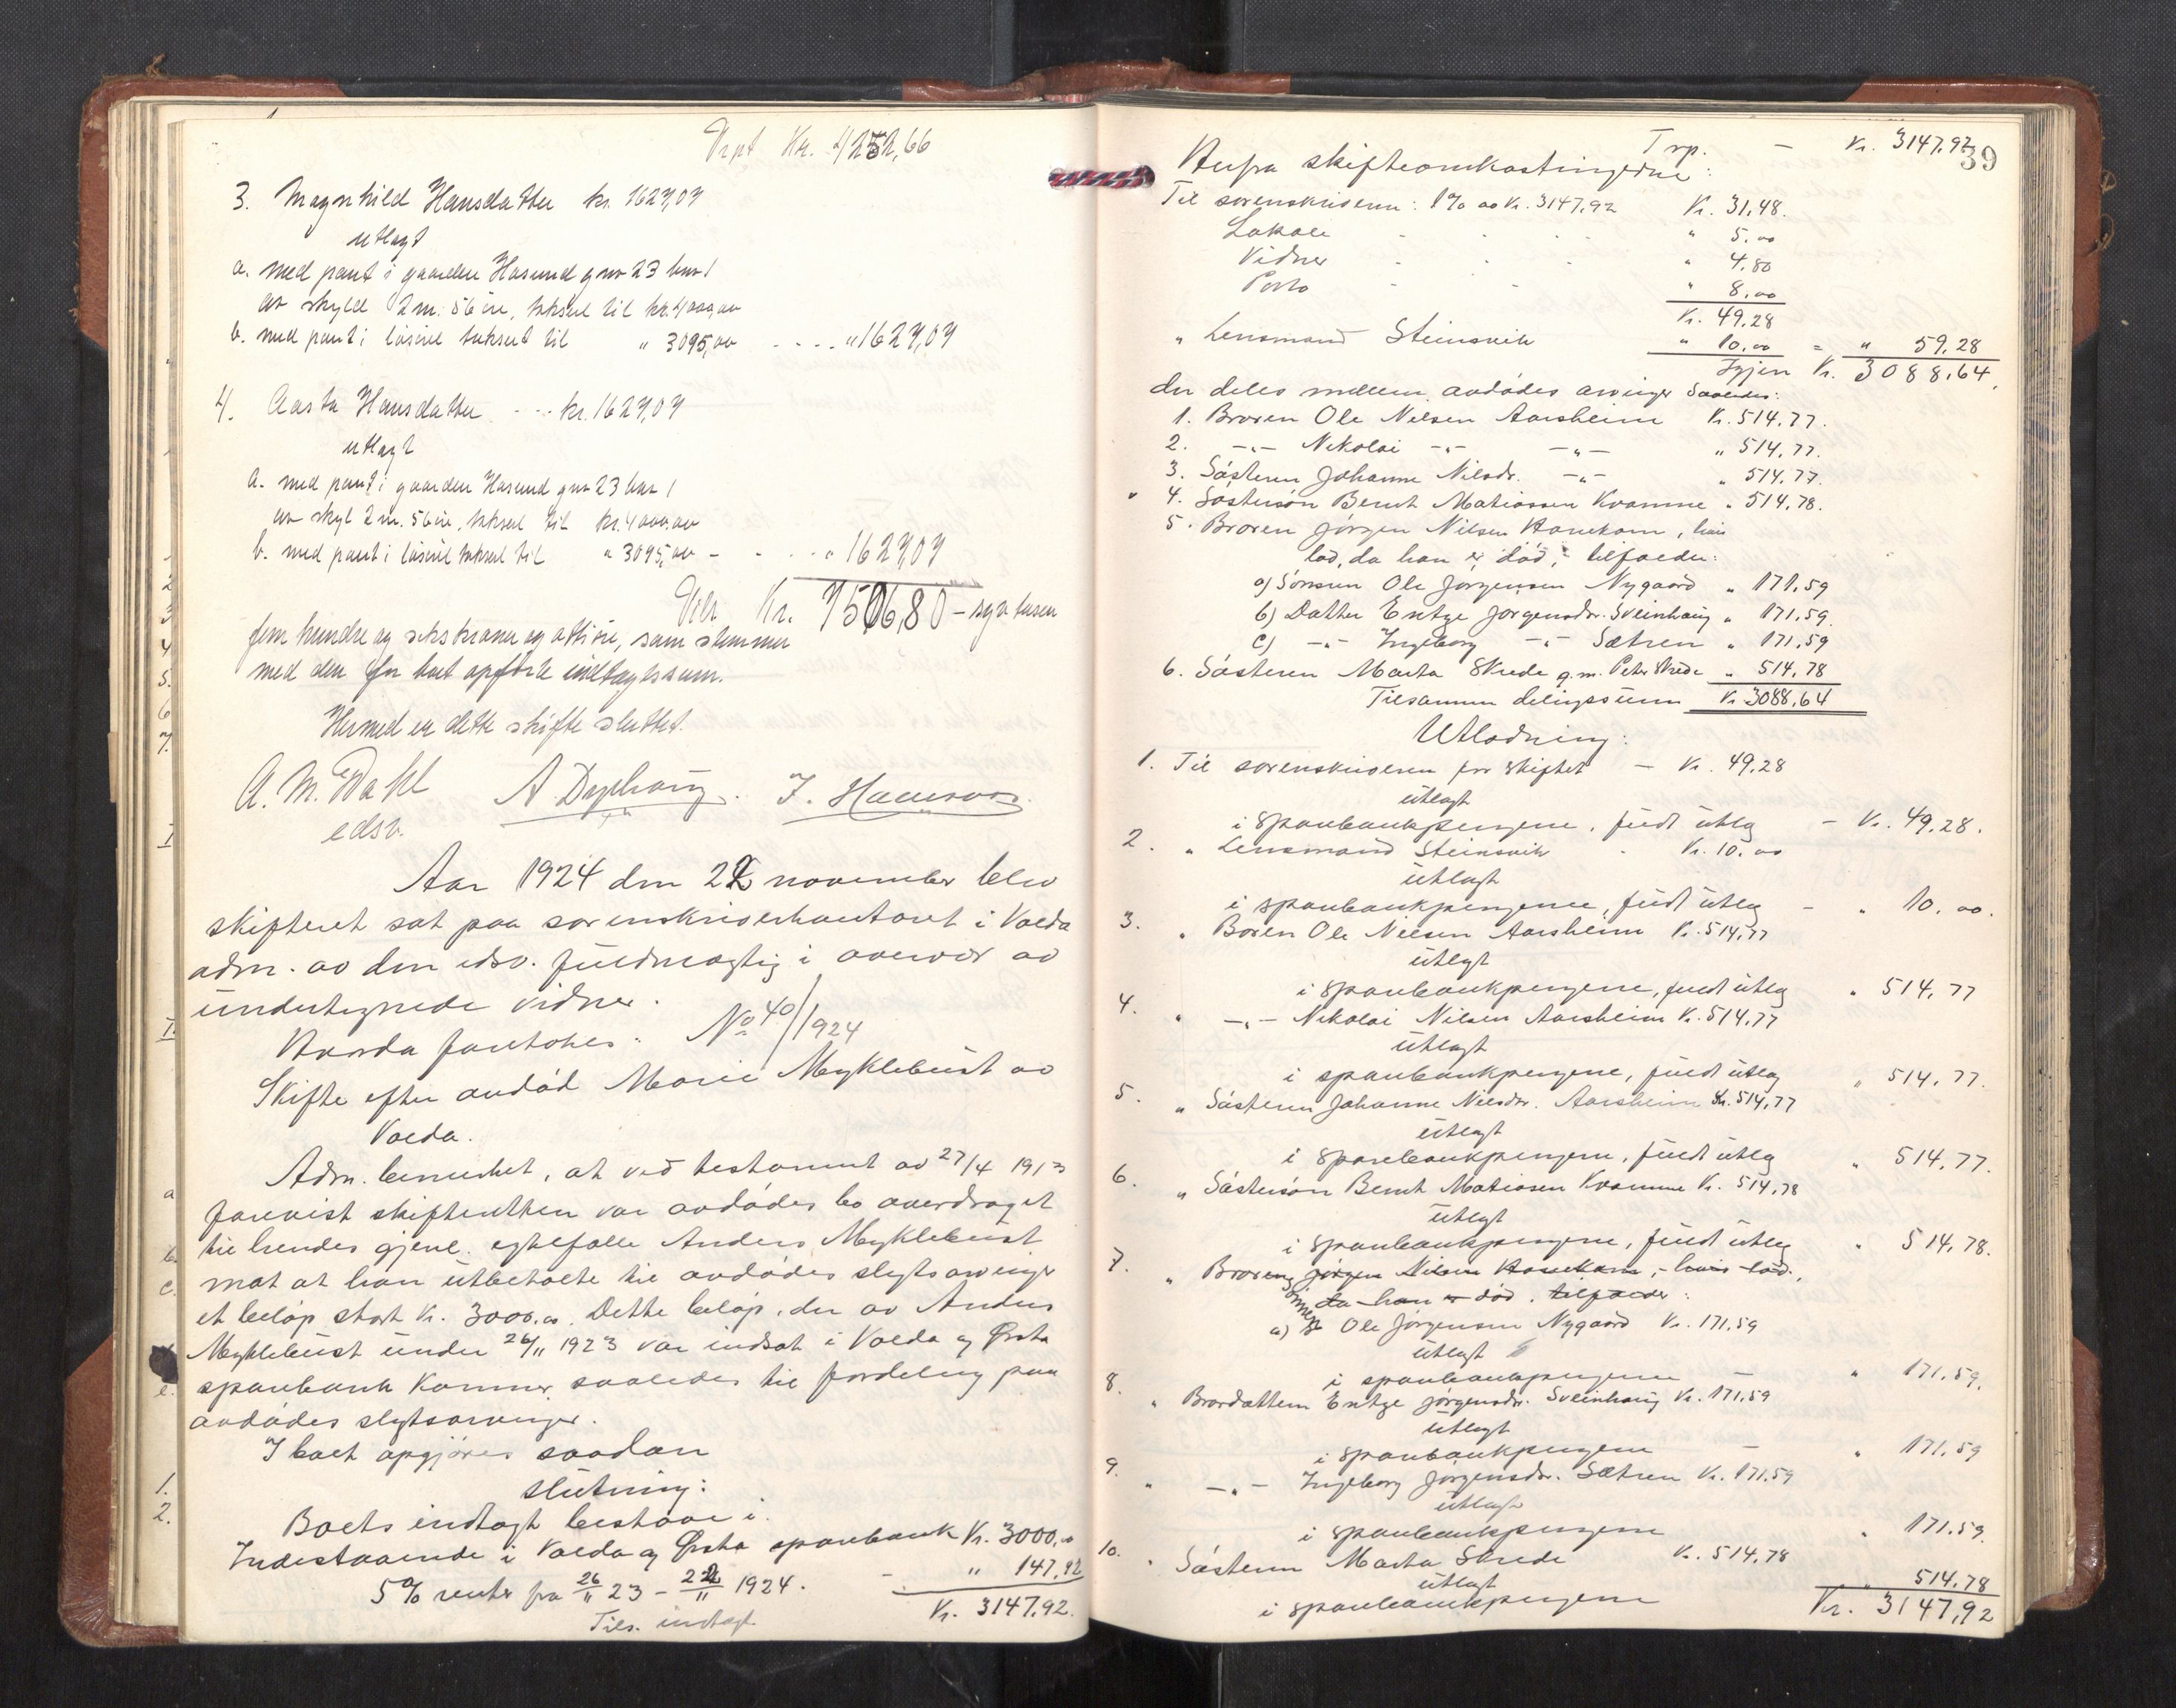 Trpt Kr. 4252,66
3. Magnhild Hansdatter kr. 1627,07
utlagt
a. med pant i gaarden Hasund gnr 23 bnr 1
av skyld 2 m. 56 øre, takseret til kr. 4000,00
b. med pant i løsøre takseret til " 3095,00 - - - - " 1627,07
4. Aasta Hansdatter - - - kr. 1627,07
utlagt
a. med pant i gaarden Hasund gnr 23 bnr 1
av skyl 2 m. 56 øre, takseret til kr. 4000,00
b. med pant i løsøre takseret til " 3095,00 - - - - " 1627,07
Tils Kr. 7506,80 - syv tusen
fem hundre og seks kroner og otti øre, som stemmer
med den for boet opførte indtægtssum.
Hermed er dette skifte sluttet.
A. M. Dahl A. Døphaug. J. Hamsvor.
edsv.
Aar 1924 den 22 november blev
skifteret sat paa sorenskriverkontoret i Volda
adm. av den edsv. fuldmægtig i overvær av
undertegnede vidner.
Hvorda foretokes: No 40/1924
Skifte efter avdød Marie Myklebust av
Volda.
Adm. bemerket, at ved testament av 27/4 1913
forevist skifteretten var avdødes bo overdraget
til hendes gjenl. egtefælle Anders Myklebust
mot at han utbetalte til avdødes slegtsarvinger
et beløp stort Kr. 3000.00. Dette beløp, der av Anders
Myklebust under 26/11 1923 var indsat i Volda og Ørsta
sparebank kommer saaledes til fordeling paa
avdødes slegtsarvinger.
I boet opgjøres saadan
slutning:
Boets indtægt bestaar i:
Indestaaende i Volda og Ørsta sparebank Kr. 3000,00
5% renter fra 26/11 23 - 22/11 1924. - " 147,92
Tils. indtægt Kr. 3147,92.
39
Trp. - Kr. 3147,92
Herfra skifteomkostningerne:
Til sorenskriveren: 1% av Kr. 3147,92 Kr. 31,48.
Lokale - - - " 5.00
Vidner - - - " 4.80
Porto - - " 8.00
Kr. 49,28
" Lensmand Steinsvik " 10.00 = " 59,28
Igjen Kr. 3088,64.
der deles mellem avdødes arvinger saaledes:
1. Broren Ole Nilsen Aarsheim Kr. 514,77.
2. -"- Nikolai -"- -"- " 514,77.
3. Søsteren Johanne Nilsdr. -"- " 514,77.
" 4. Søstersøn Bernt Matiassen Kvamme " 514,78.
5. Broren Jørgen Nilsen Hanekam, hvis
lod, da han er død, tilfalder:
a) Sønnen Ole Jørgensen Nygaard " 171,59
b) Datter Entze Jørgensdr. Sveinhaug " 171,59.
c) -"- Ingeborg -"- Sætren " 171,59
6. Søsteren Marta Skrede g.m. Peter Skrede " 514,78
Tilsammen delingssum Kr. 3088,64
Utlodning:
1. Til sorenskriveren for skiftet - Kr. 49,28
utlagt
i sparebankpengene, fuldt utlæg - Kr. 49,28.
2. " Lensmand Steinsvik - Kr. 10.00
utlagt
i sparebankpengene, fuldt utlæg - " 10.00.
3. " Boren Ole Nilsen Aarsheim Kr. 514,77
utlagt
i sparebankpengene, fuldt utlæg " 514,77
4. " -"- Nikolai Nilsen Aarsheim Kr. 514,77
utlagt
i sparebankpengene, fuldt utlæg " 514,77.
5. " Søsteren Johanne Nilsdr. Aarsheim Kr. 514,77
utlagt
i sparebankpengene, fuldt utlæg " 514,77.
6. " Søstersøn Bernt Matiasen Kvamme Kr. 514,78
utlagt
i sparebankpengene, fuldt utlæg " 514,78.
7. " Brorens Jørgen Nilsen Hanekam, - hvis lod,
sønner da han er død, tilfalder:
a) Ole Jørgensen Nygaard Kr. 171,59
utlagt
i sparebankpengene - " 171,59.
8. " Brordatteren Entze Jørgensdr. Sveinhaug Kr. 171,59
utlagt
i sparebankpengene - " 171,59
9. " -"- Ingeborg Jørgensdr. Sætren Kr. 171,59
utlagt
i sparebankpengene " 171,59.
10. " Søsteren Marta Skrede Kr. 514,78
utlagt
i sparebankpengene " 514,78
Kr. 3147,92